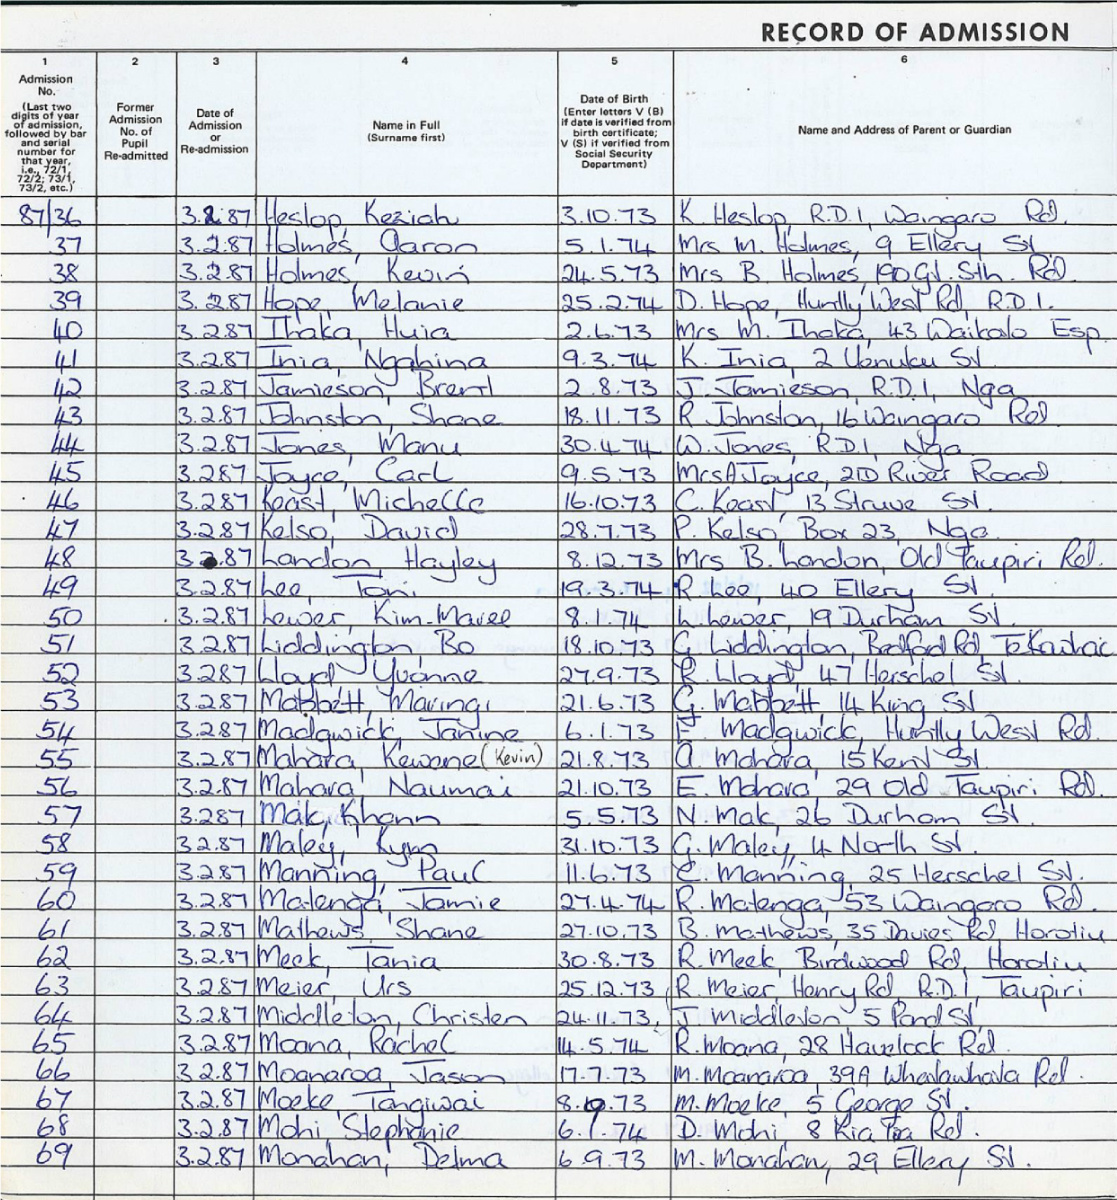 RECORD OF ADMISSION
1 2 3 4 5 6
Admission No. (Last two digits of year of admission, followed by bar and serial number for that year, i.e., 72/1, 72/2; 73/1, 73/2, etc.)
Former Admission No. of Pupil Re-admitted
Date of Admission or Re-admission
Name in Full (Surname first)
Date of Birth (Enter letters V (B) if date is verified from birth certificate; V (S) if verified from Social Security Department)
Name and Address of Parent or Guardian
87/36 3.2.87 Heslop, Keziah 3.10.73 K. Heslop, R.D.1, Waingaro Rd.
37 3.2.87 Holmes, Aaron 5.1.74 Mrs M. Holmes, 9 Ellery St
38 3.2.87 Holmes, Kevin 24.5.73 Mrs B. Holmes, 190 Gt. Sth. Rd.
39 3.2.87 Hope, Melanie 25.2.74 D. Hope, Huntly West Rd, R.D.1.
40 3.2.87 Ihaka, Huia 2.6.73 Mrs M. Ihaka, 43 Waikato Esp.
41 3.2.87 Inia, Ngahina 9.3.74 K. Inia, 2 Uenuku St
42 3.2.87 Jamieson, Brent 2.8.73 J. Jamieson, R.D.1, Nga
43 3.2.87 Johnston, Shane 18.11.73 R Johnston, 16 Waingaro Rd
44 3.2.87 Jones, Manu 30.4.74 W. Jones, R.D.1, Nga.
45 3.2.87 Joyce, Carl 9.5.73 Mrs A Joyce, 21D River Road
46 3.2.87 Keast, Michelle 16.10.73 C. Keast, 13 Struve St.
47 3.2.87 Kelso, David 28.7.73 P. Kelso, Box 23, Nga.
48 3.2.87 Landon, Hayley 8.12.73 Mrs B. Landon, Old Taupiri Rd.
49 3.2.87 Lee, Toni 19.3.74 R. Lee, 40 Ellery St.
50 3.2.87 Lewer, Kim-Maree 8.1.74 L. Lewer, 19 Durham St.
51 3.2.87 Liddington, Bo 18.10.73 G. Liddington, Bedford Rd, Te Kowhai
52 3.2.87 Lloyd, Yvonne 27.9.73 R. Lloyd, 47 Herschel St.
53 3.2.87 Mabbett, Maringi 21.6.73 G. Mabbett, 14 King St
54 3.2.87 Madgwick, Janine 6.1.73 F Madgwick, Huntly West Rd.
55 3.2.87 Mahara, Kewene (Kevin) 21.8.73 A. Mahara, 15 Kent St.
56 3.2.87 Mahara, Naumai 21.10.73 E. Mahara 29 Old Taupiri Rd.
57 3.2.87 Mak, Khonn 5.5.73 N. Mak, 26 Durham St.
58 3.2.87 Maley, Kym 31.10.73 G. Maley, 4 North St.
59 3.2.87 Manning, Paul 11.6.73 C. Manning, 25 Herschel St.
60 3.2.87 Matenga, Jamie 27.4.74 R. Matenga, 53 Waingaro Rd.
61 3.2.87 Mathews, Shane 27.10.73 B. Mathews, 35 Davies Rd Horotiu
62 3.2.87 Meek, Tania 30.8.73 R. Meek, Birdwood Rd, Horotiu
63 3.2.87 Meier, Urs 25.12.73 R. Meier, Henry Rd, R.D.1, Taupiri
64 3.2.87 Middleton, Christen 24.11.73 J. Middleton 5 Pond St
65 3.2.87 Moana, Rachel 14.5.74 R. Moana, 28 Havelock Rd.
66 3.2.87 Moanaroa, Jason 17.7.73 M. Moanaroa, 39A Whatawhata Rd.
67 3.2.87 Moeke, Tangiwai 8.9.73 M. Moeke, 5 George St.
68 3.2.87 Mohi, Stephanie 6.1.74 D. Mohi, 8 Kia Ora Rd.
69 3.2.87 Monahan, Delma 6.9.73 M. Monahan, 29 Ellery St.